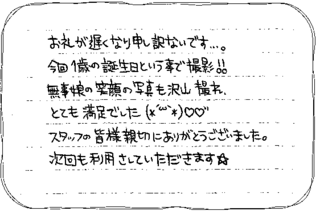 お礼が遅くなり申し訳ないです…。
今回1歳の誕生日という事で撮影!!
無事娘の笑顔の写真も沢山撮れ、
とても満足でした(*´ω`*)♡♡
スタッフの皆様親切にありがとうございました。
次回も利用させていただきます☆